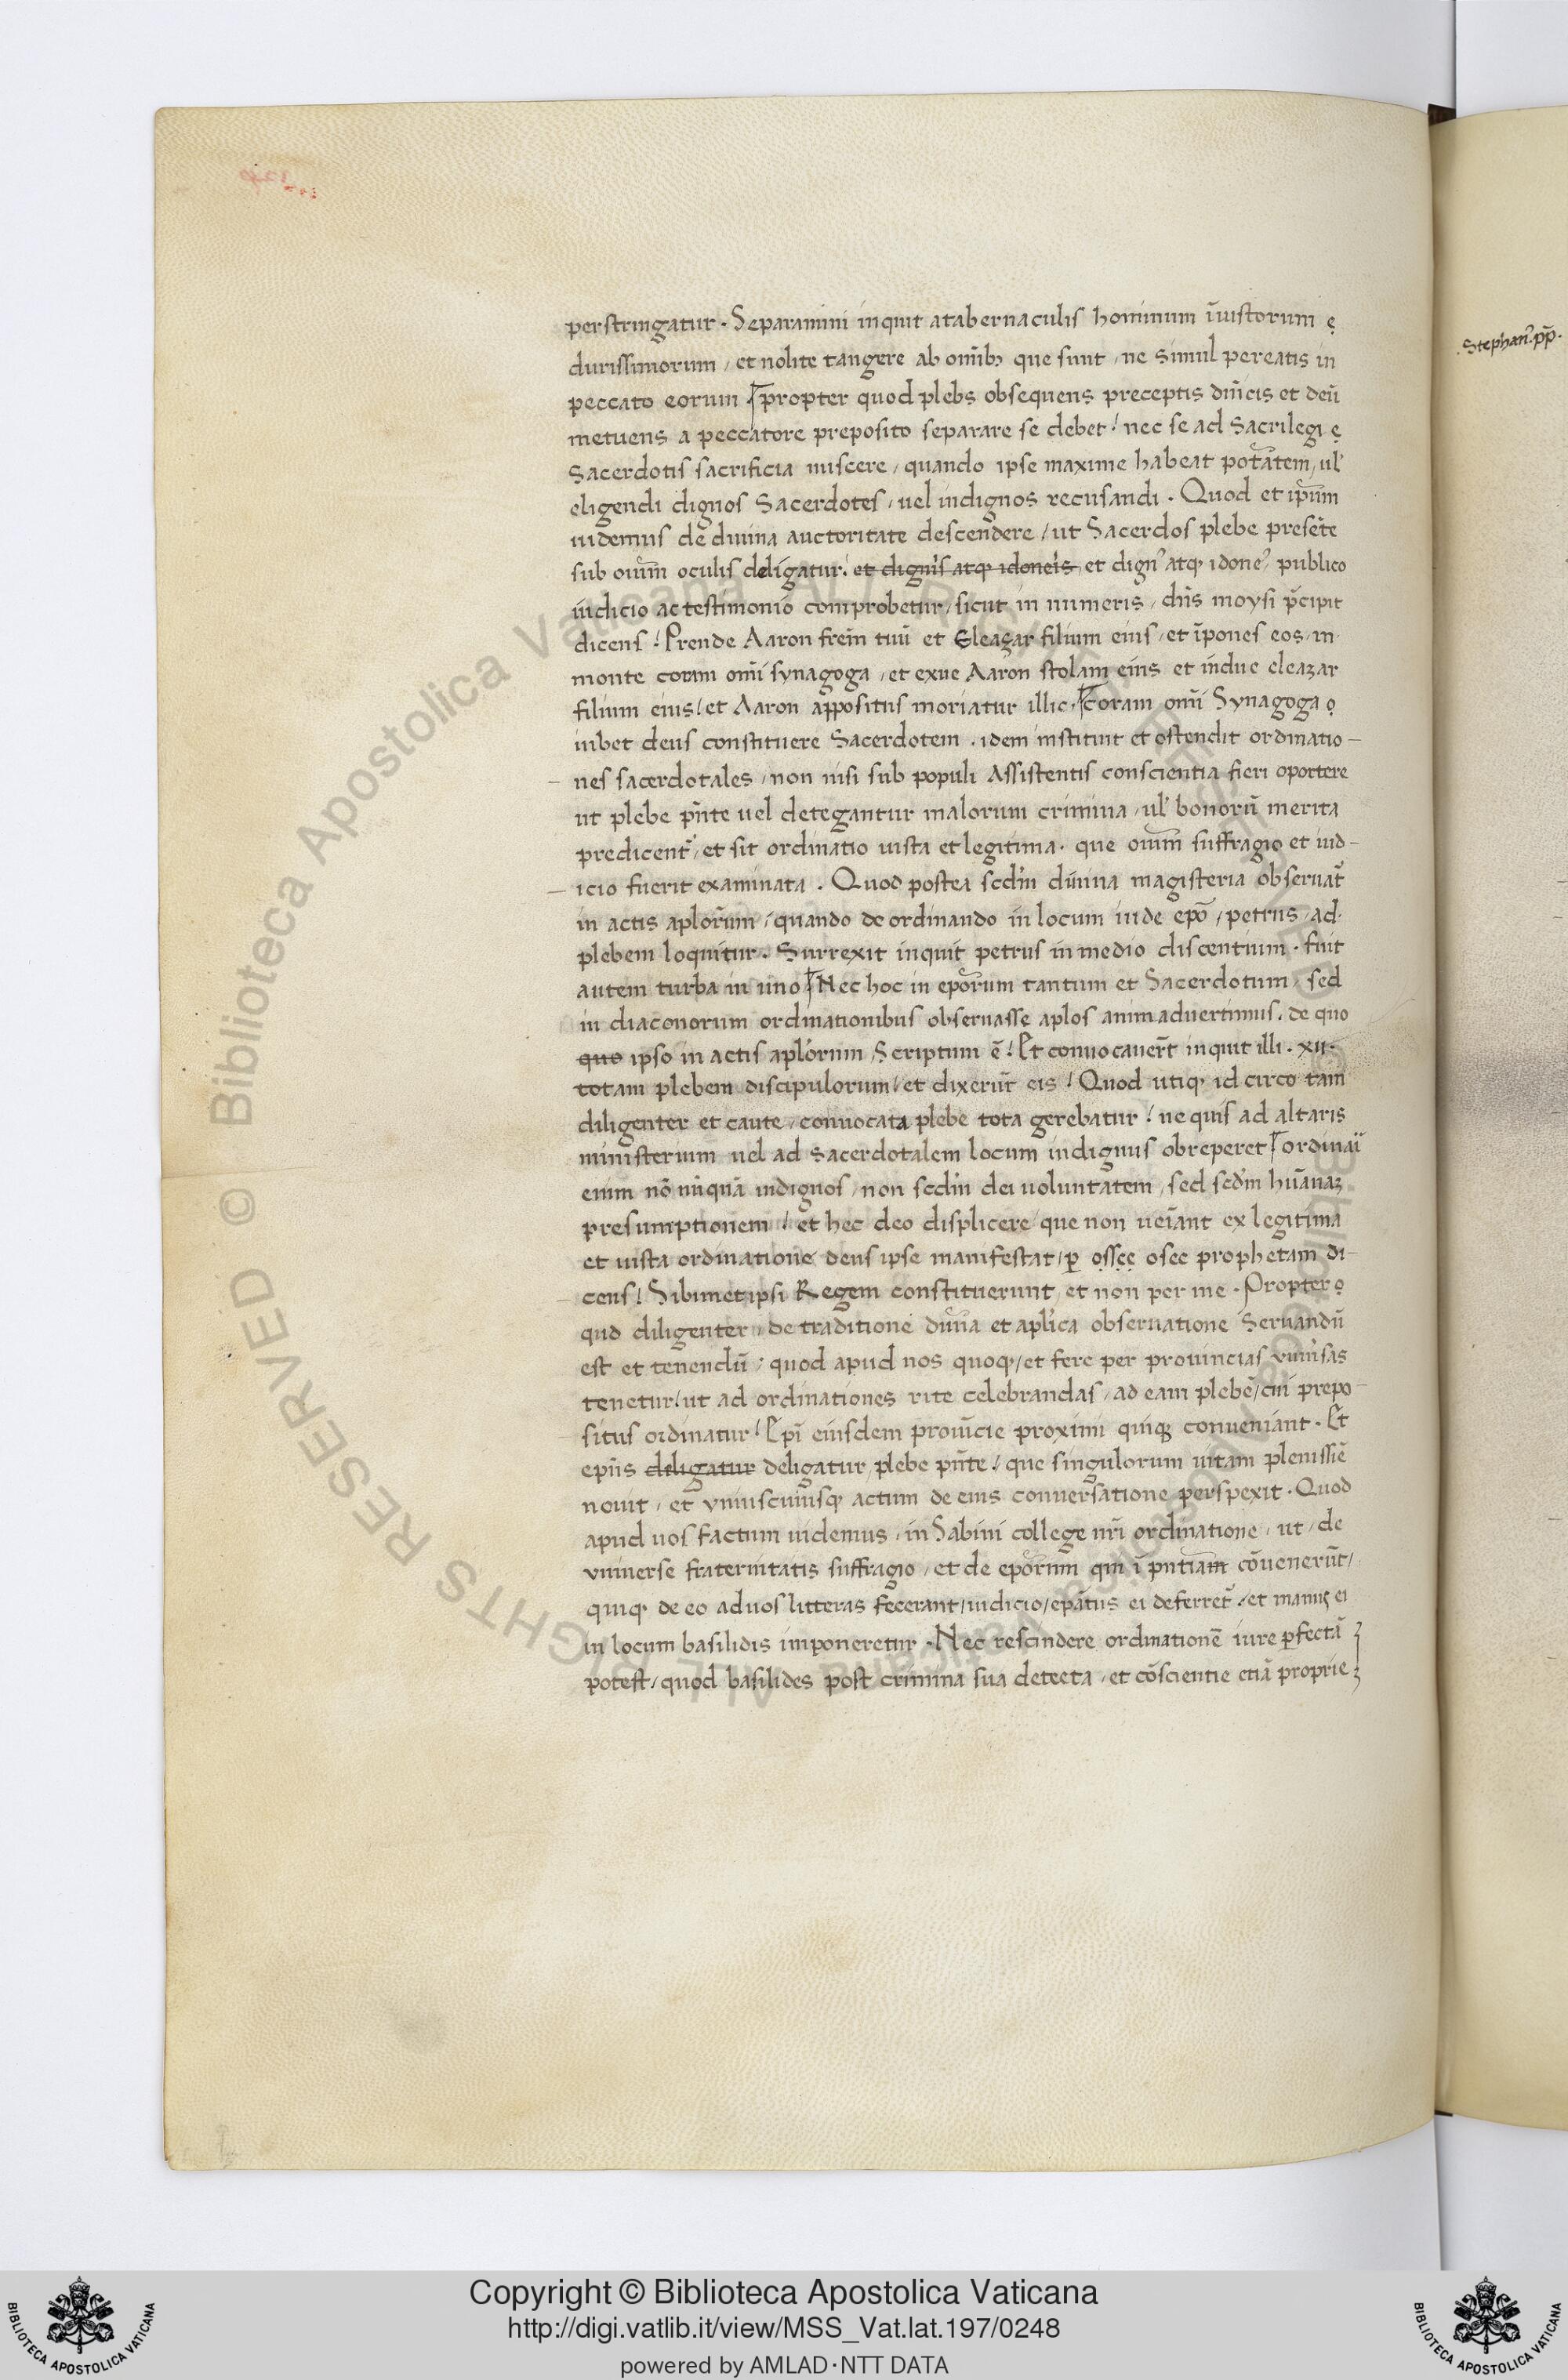 perstringatur. Separamini inquit atabernaculis hominum īiustorum ẹ
durissimorum, et nolite tangere ab om̄ibꝫ que sunt, ne simul pereatis in
peccato eorum propter quod plebs obsequens preceptis dn̄icis et deū
metuens a peccatore preposito separare se debet! nec se ad Sacrilegi ẹ
Sacerdotis sacrificia miscere, quando ipse maxime habeat potāteꝫ, ul̓
eligendi dignos Sacerdotes, uel indignos recusandi. Quod et ip̄um
uidemus de diuina auctoritate descendere, ut Sacerdos plebe presēte
sub oīum oculis deligatur. et dignis atqꝫ idoneis et dignꝰ atqꝫ idoneꝰ, publico
iudicio ac testimonio comprobetur, sicut in numeris, dn̄s moysi p̄cipit
dicens! Prende Aaron frēm tuū et Eleazar filium eius, et īpones eos, in
monte coram om̄i synagoga, et exue Aaron stolam eius et indue eleazar
filium eius, et Aaron appositus moriatur illic, coram om̄i Synagoga ọ
iubet deus constituere Sacerdotem. idem instituit et ostendit ordinatio-
nes sacerdotales, non nisi sub populi Assistentis conscientia fieri oportere
ut plebe pn̄te uel detegantur malorum crimina, ul̓ bonorū merita
predicent᷑, et sit ordinatio iusta et legitima. que oīum suffragio et iud-
icio fuerit examinata. Quod postea scd̓m diuina magisteria obseruat᷑
in actis aplōrum, quando de ordinando in locum iude epō, petrus, ad
plebem loquitur. Surrexit inquit petrus in medio discentium. fuit
autem turba in uno Nec hoc in epōrum tantum et Sacerdotum, sed
in diaconorum ordinationibus obseruasse aplos animaduertimus. de quo
quo ipso in actis apl̓orum Scriptum ē! Et conuocauer̄t inquit illi. xii.
totam plebem discipulorum, et dixerūt eis! Quod utiqꝫ id circo tam
diligenter et caute, conuocata plebe tota gerebatur! ne quis ad altaris
ministerium uel ad sacerdotalem locum indignus obreperet ordinaı̄
enim nō nūquā indignos, non scd̓m dei uoluntatem, sed scd̓m hūanaꝫ
presumptionem! et hec deo displicere, que non ueīant ex legitima
et iusta ordinatione deus ipse manifestat, ꝑ ọṣṣẹẹ osee prophetam di-
cens! Sibimetipsi Regem constituerunt et non per me. Propter ọ
quod diligenter, de traditione diūa et apl̓ica obseruatione Seruandū
est et tenendū, quod apud nos quoqꝫ, et fere per prouincias uniūsas
tenetur, ut ad ordinationes rite celebrandas, ad eam plebē, cui prepo-
situs ordinatur! Epī eiusdem prouīcie proximi quiqꝫ conueniant. Et
epūs deligatur deligatur, plebe pn̄te! que singulorum uitam plenissīe
nouit, et uniuscuiusqꝫ actum de eius conuersatione perspexit. Quod
apud uos factum uidemus, in Sabini college nr̄i ordinatione, ut, de
uniuerse fraternitatis suffragio, et de epōrum qui ī pn̄tiam cōuenerūt,
quiqꝫ de eo ad uos litteras fecerant, iudicio, epātus ei deferret᷑, et manus ei
in locum basilidis imponeretur. Nec rescindere ordinationē iure ꝑfectā
potest, quod basilides post crimina sua detecta, et cōscientie etiā proprie
Stephanꝰ. pp̄.
© Biblioteca Apostolica Vaticana ALL RIGHTS RESERVED
Copyright © Biblioteca Apostolica Vaticana
http://digi.vatlib.it/view/MSS_Vat.lat.197/0248
powered by AMLAD·NTT DATA
BIBLIOTECA APOSTOLICA VATICANA
BIBLIOTECA APOSTOLICA VATICANA